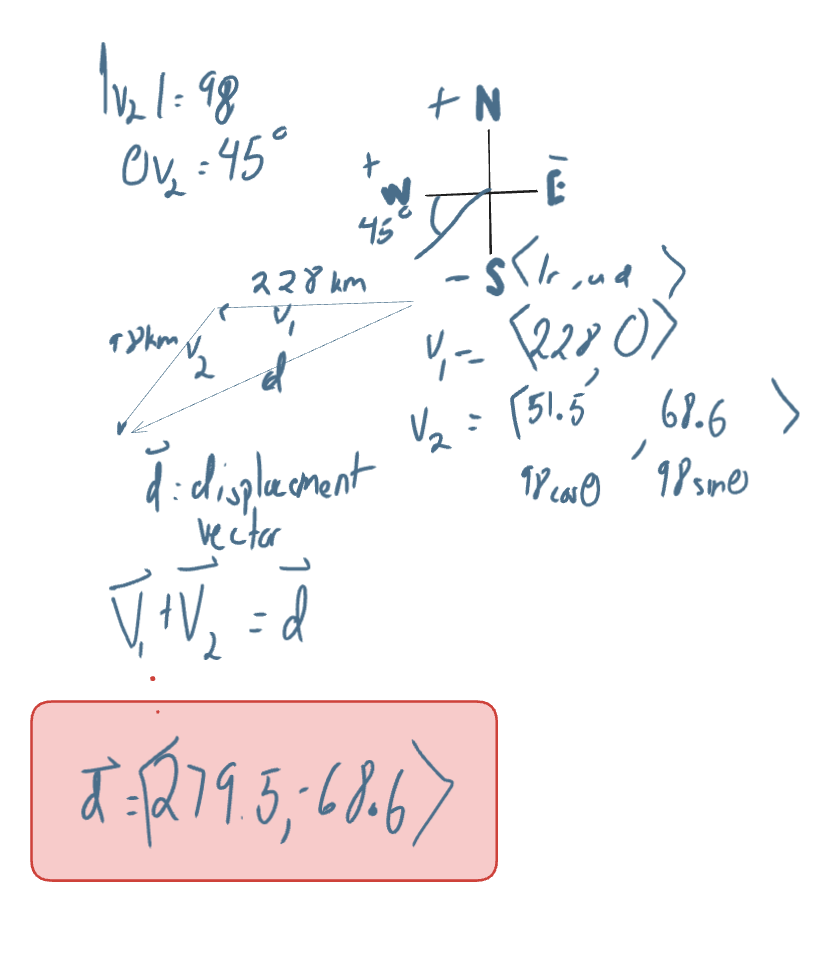 |v₂| = 98
θv₂ = 45°
+ N
+
W
Ē
45°
- S
⟨lr, ud⟩
228 km
v₁
98km
v₂
d
v₁ = ⟨228, 0⟩
v₂ = ⟨51.5, 68.6⟩
98cosθ
98sinθ
d⃗ : displacment
vector
V⃗₁ + V⃗₂ = d⃗
d⃗ = ⟨279.5, -68.6⟩